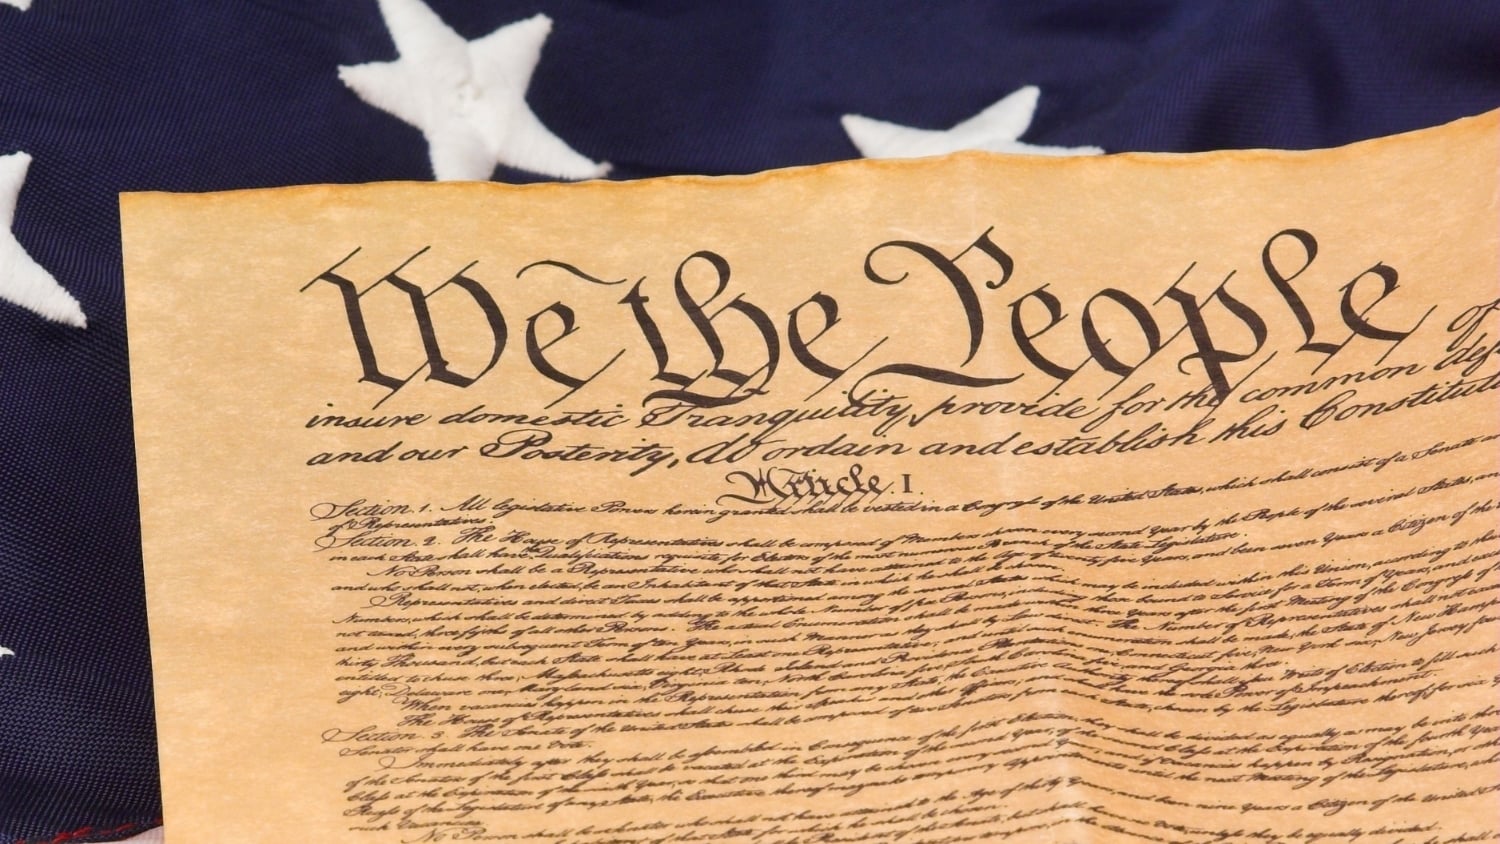 We the People of
insure domestic Tranquility, provide for the common def
and our Posterity, do ordain and establish this Constitut
Article. I.
Section. 1. All legislative Powers herein granted shall be vested in a Congress of the United States, which shall consist of a Senate
of Representatives.
Section. 2. The House of Representatives shall be composed of Members chosen every second Year by the People of the several States, an
in each State shall have Qualifications requisite for Electors of the most numerous Branch of the State Legislature.
No Person shall be a Representative who shall not have attained to the Age of twenty five Years, and been seven Years a Citizen of the
and who shall not, when elected, be an Inhabitant of that State in which he shall be chosen.
Representatives and direct Taxes shall be apportioned among the several States which may be included within this Union, according to
Numbers, which shall be determined by adding to the whole Number of free Persons, including those bound to Service for a Term of Years, and
not taxed, three fifths of all other Persons. The actual Enumeration shall be made within three Years after the first Meeting of the Congress of
and within every subsequent Term of ten Years, in such Manner as they shall by Law direct. The Number of Representatives shall not
thirty Thousand, but each State shall have at Least one Representative; and until such enumeration shall be made, the State of New Hamp
entitled to chuse three, Massachusetts eight, Rhode Island and Providence Plantations one, Connecticut five, New York six, New Jersey four
eight, Delaware one, Maryland six, Virginia ten, North Carolina five, South Carolina five, and Georgia three.
When vacancies happen in the Representation from any State, the Executive Authority thereof shall issue Writs of Election to fill such
The House of Representatives shall chuse their Speaker and other Officers; and shall have the sole Power of Impeachment.
Section. 3. The Senate of the United States shall be composed of two Senators from each State, chosen by the Legislature thereof, for six
Senator shall have one Vote.
Immediately after they shall be assembled in Consequence of the first Election, they shall be divided as equally as may be into three
of the Senators of the first Class shall be vacated at the Expiration of the second Year, of the second Class at the Expiration of the fourth Year
Class at the Expiration of the sixth Year, so that one third may be chosen every second Year; and if Vacancies happen by Resignation, or
Recess of the Legislature of any State, the Executive thereof may make temporary Appointments until the next Meeting of the Legislature,
such Vacancies.
No Person shall be a Senator who shall not have attained to the Age of thirty Years, and been nine Years a Citizen of the United